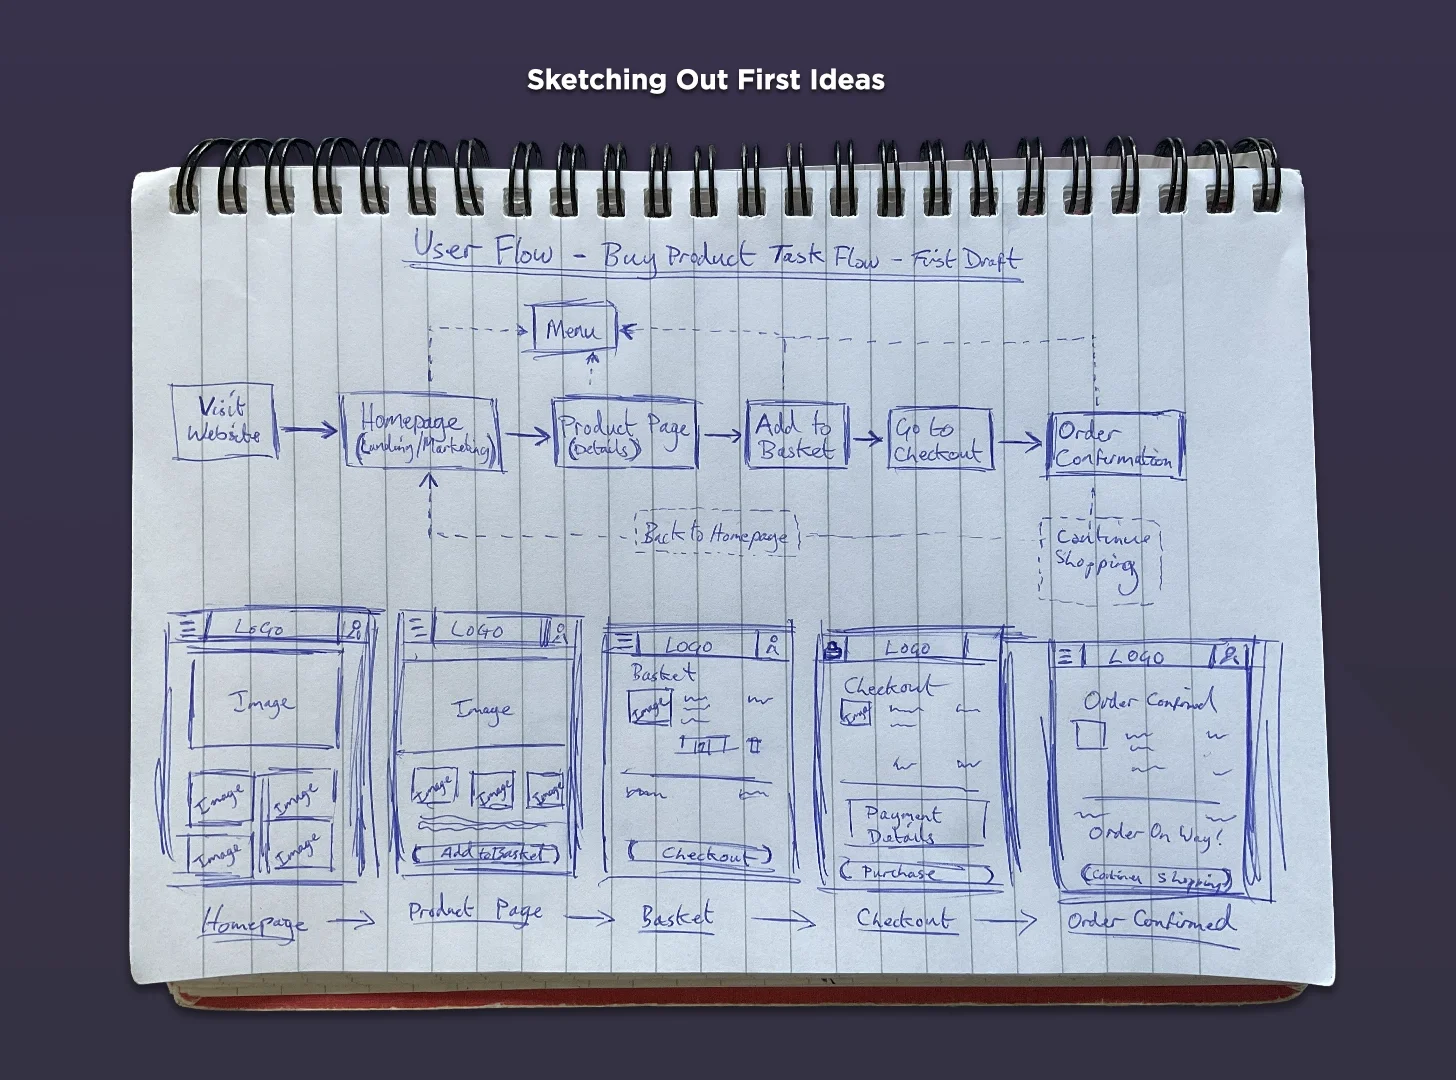 Sketching Out First Ideas
User Flow - Buy Product Task Flow - First Draft
Menu
Visit
Website
Homepage
(Landing/Marketing)
Product Page
(Details)
Add to
Basket
Go to
Checkout
Order
Confirmation
Back to Homepage
Continue
Shopping
LOGO
Image
Image
Image
Image
Image
Homepage
LOGO
Image
Image
Image
Image
Add to Basket
Product Page
LOGO
Basket
Image
Checkout
Basket
LOGO
Checkout
Image
Payment
Details
Purchase
Checkout
LOGO
Order Confirmed
Order On Way!
Continue Shopping
Order Confirmed